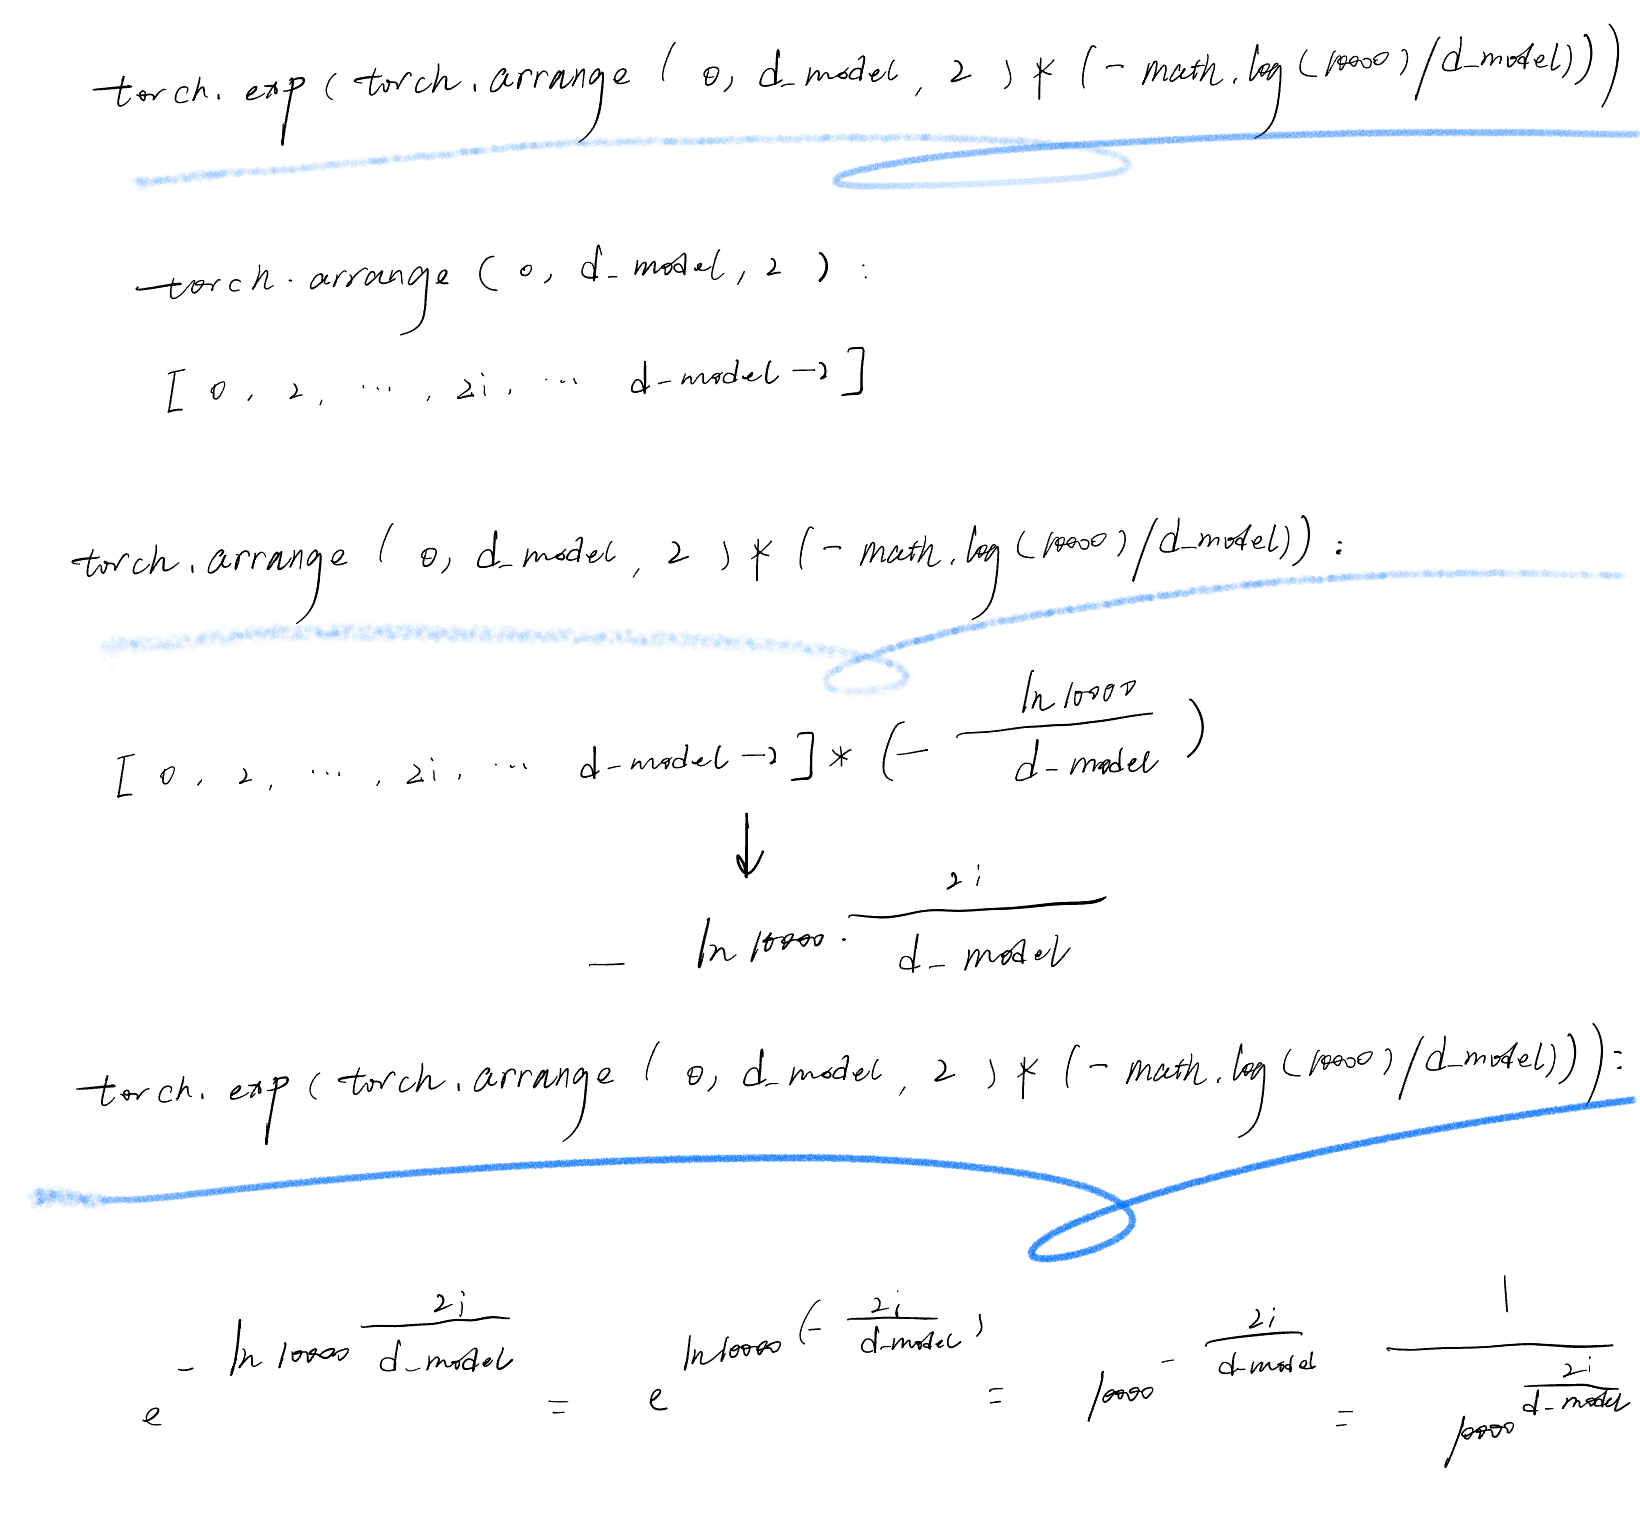 torch.exp(torch.arrange(0, d_model, 2)*(-math.log(10000)/d_model)))
torch.arrange(0, d_model, 2):
[0, 2, ..., 2i, ... d-model-2]
torch.arrange(0, d_model, 2)*(-math.log(10000)/d_model)):
[0, 2, ..., 2i, ... d-model-2]*(- ln10000 / d-model)
↓
- ln10000 · 2i / d_model
torch.exp(torch.arrange(0, d_model, 2)*(-math.log(10000)/d_model))):
e^(- ln10000 2i/d_model) = e^(ln10000(- 2i/d-model)) = 10000^(- 2i/d-model) = 1 / 10000^(2i/d-model)